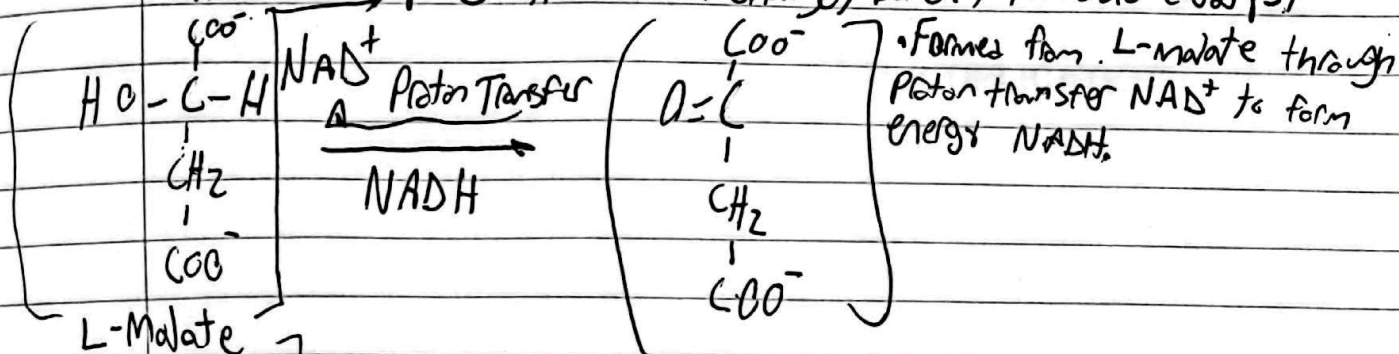 COO⁻
HO-C-H
CH2
COO⁻
L-Malate
NAD⁺
Proton Transfer
NADH
COO⁻
O=C
CH2
COO⁻
• Formed from L-malate through
Proton transfer NAD⁺ to form
energy NADH.